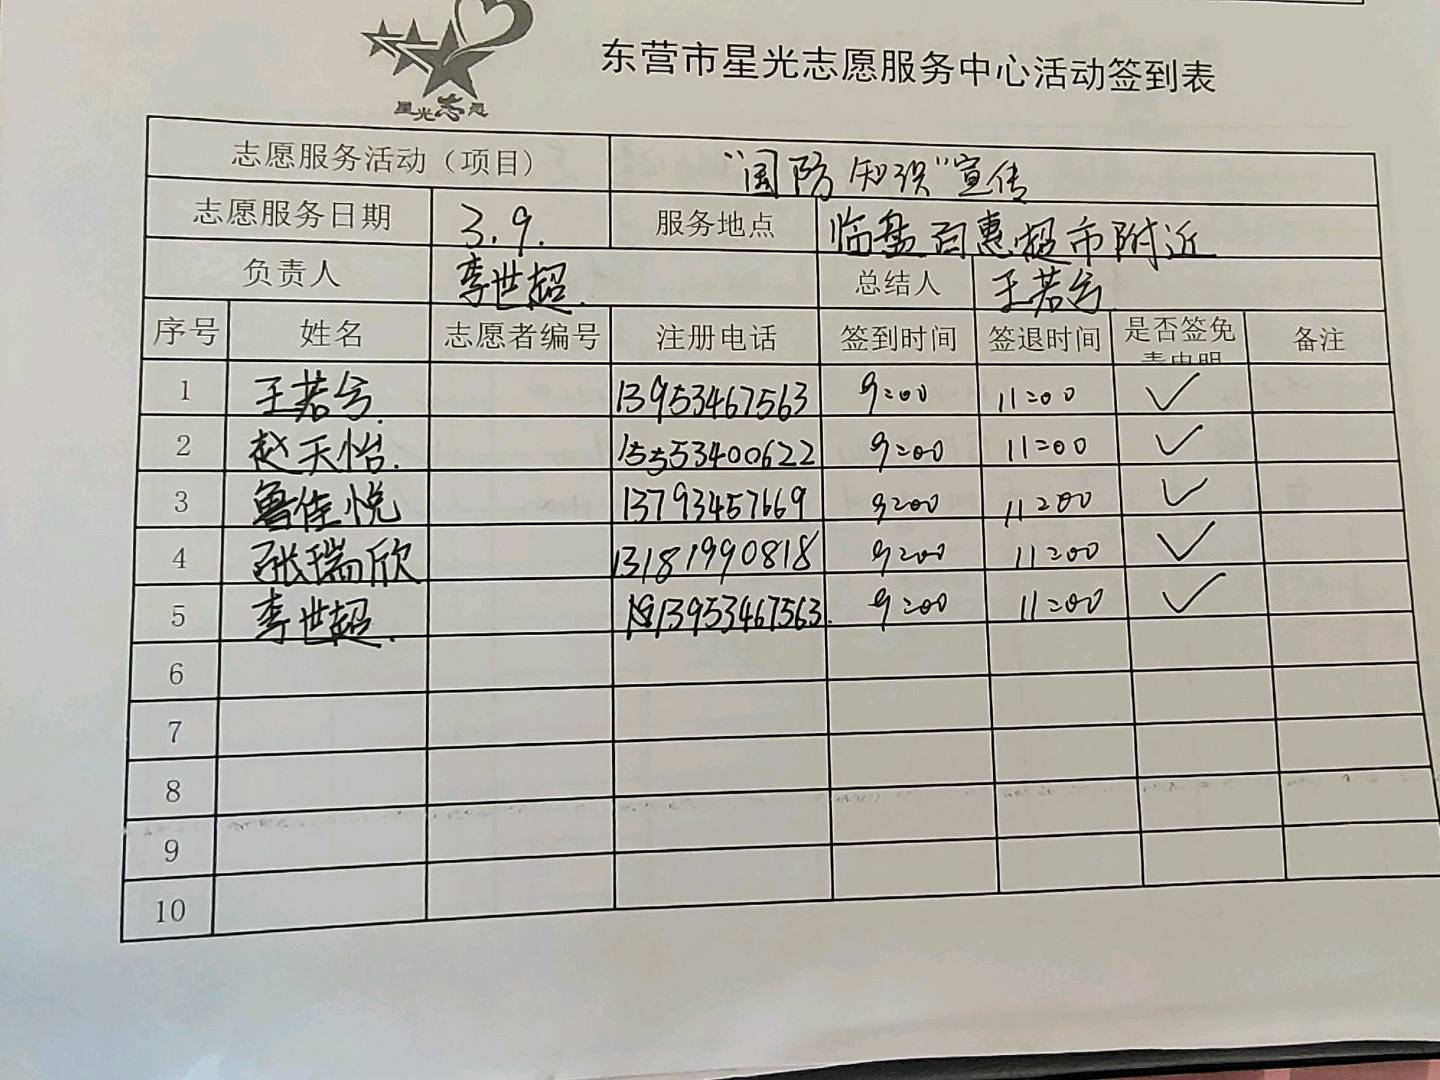 星光志愿
东营市星光志愿服务中心活动签到表
志愿服务活动（项目） “国防知识”宣传
志愿服务日期 3.9. 服务地点 临盘百惠超市附近
负责人 李世超. 总结人 王若兮
序号 姓名 志愿者编号 注册电话 签到时间 签退时间 是否签免责申明 备注
1 王若兮. 13953467563 9:00 11:00 ✓
2 赵天怡. 15553400622 9:00 11:00 ✓
3 鲁佳悦 13793457669 9:00 11:00 ✓
4 张瑞欣 13181990818 9:00 11:00 ✓
5 李世超. 13953467563. 9:00 11:00 ✓
6
7
8
9
10